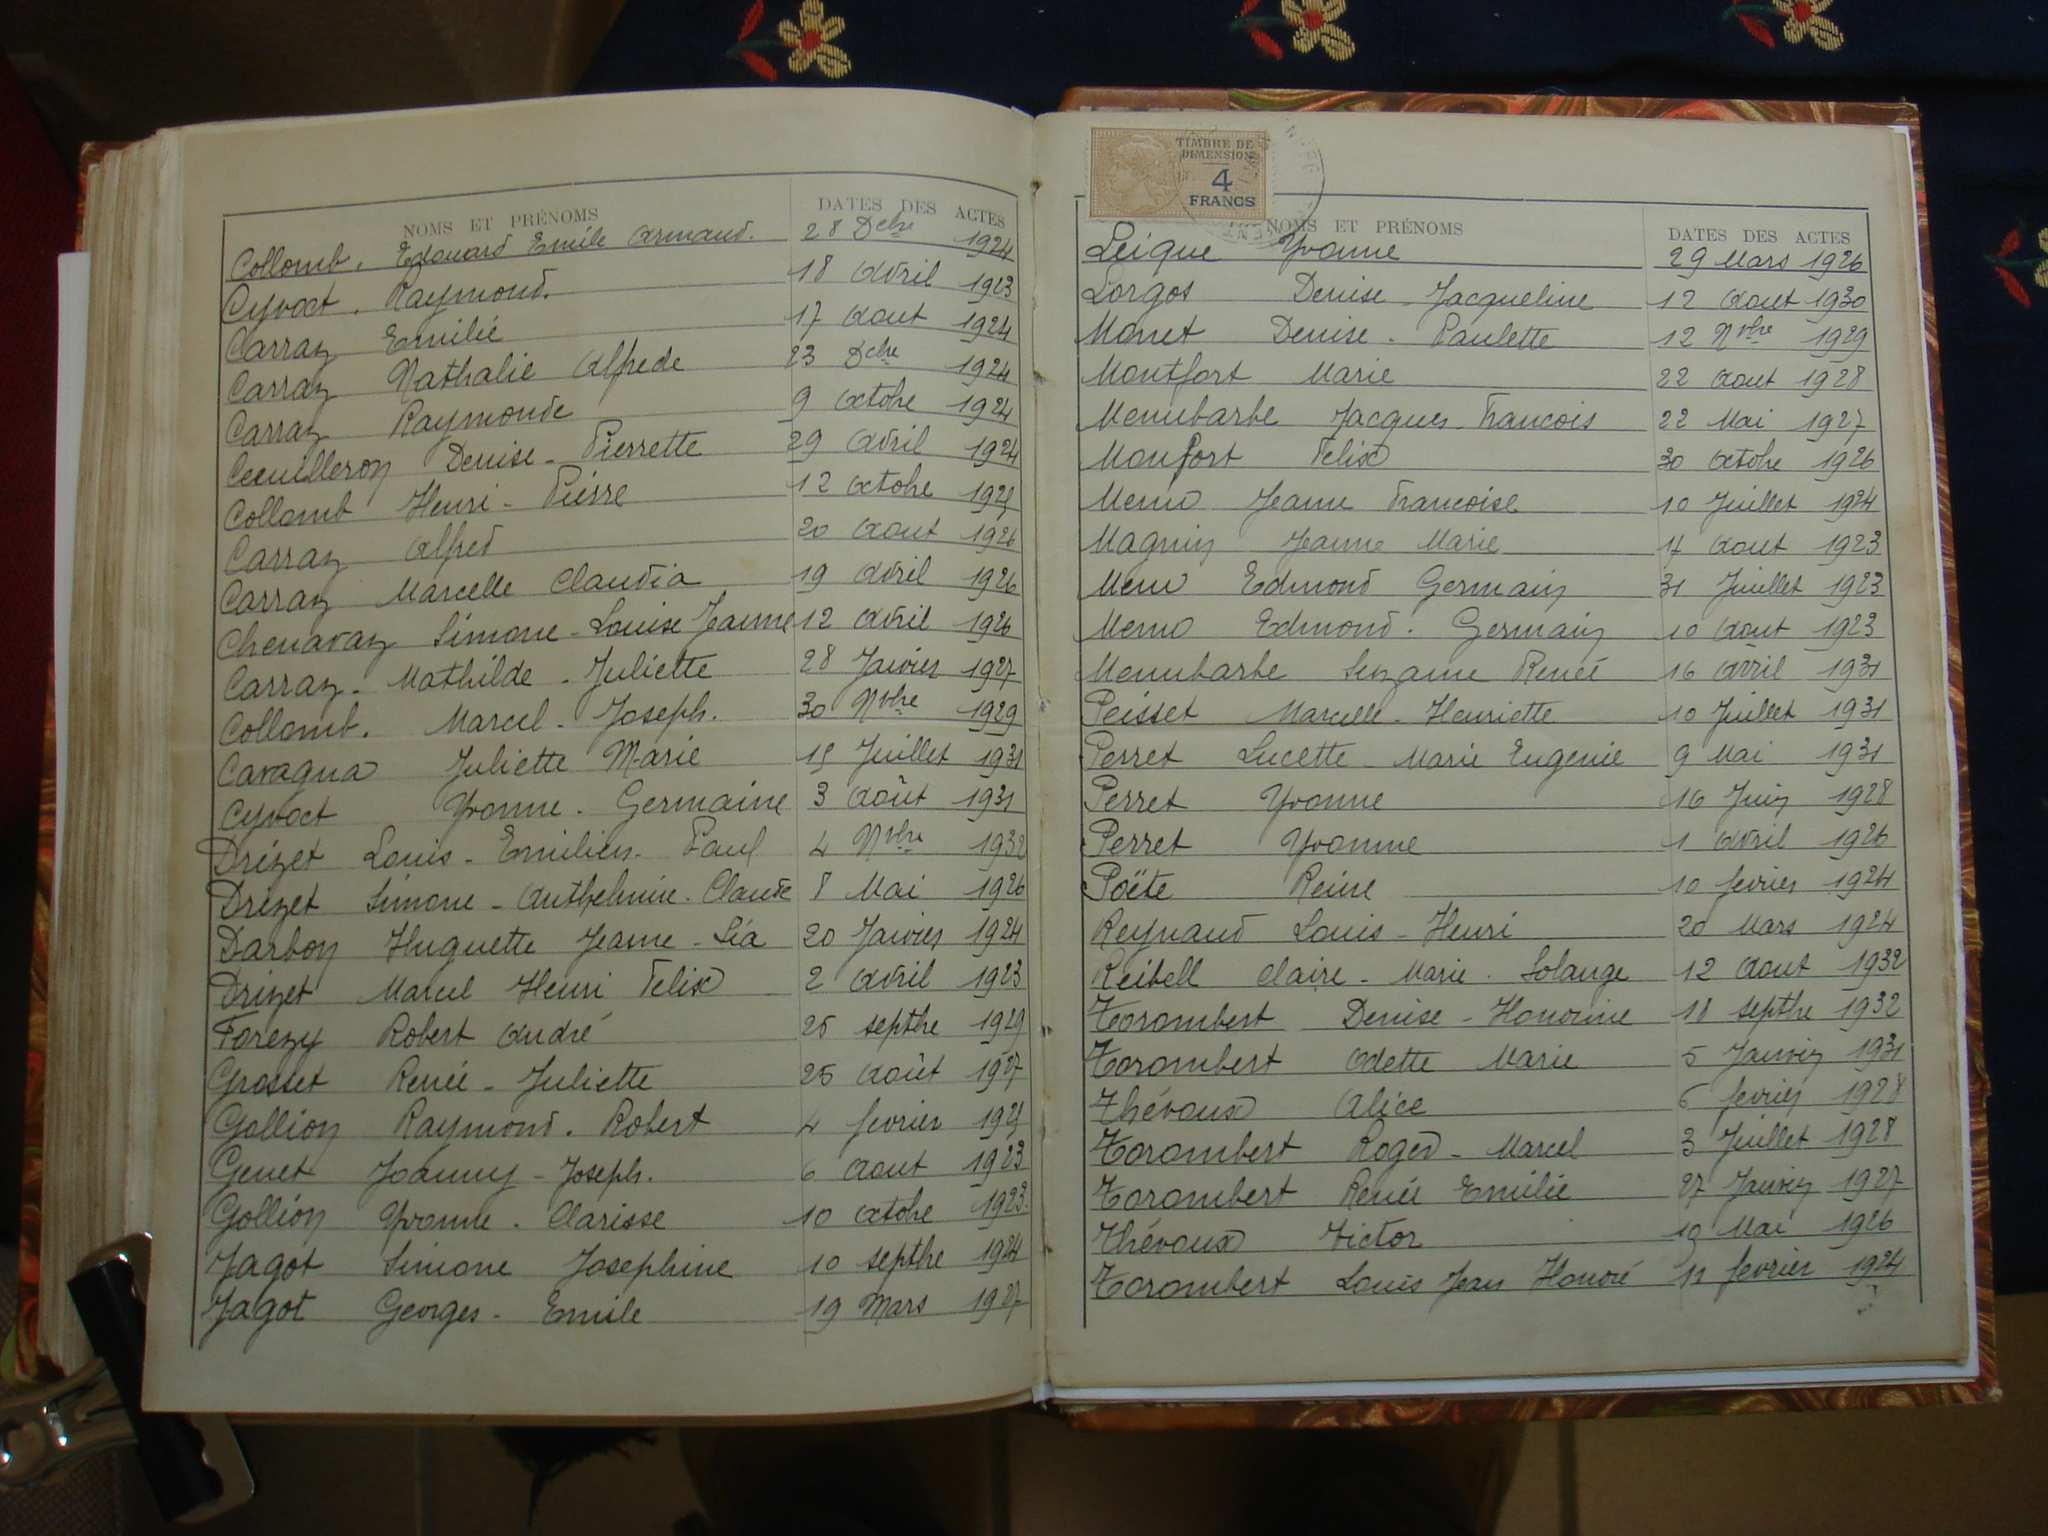 NOMS ET PRÉNOMS DATES DES ACTES
Collomb. Edouard Emile Armand. 28 Dcbre 1924
Cyvoct. Raymond. 18 Avril 1923
Carraz Emilie 17 Aout 1924
Carraz Nathalie Alfrede 23 Dcbre 1924
Carraz Raymonde 9 Octobre 1924
Cecuilleron Denise - Pierrette 29 Avril 1924
Collomb Henri - Pierre 12 Octobre
Carraz Alfred 20 Aout 1926
Carraz Marcelle Claudia 19 Avril 1926
Chenavaz Simone - Louise Jeanne 12 Avril 1926
Carraz. Mathilde - Juliette 28 Janvier 1927
Collomb. Marcel - Joseph. 30 Nvbre 1929
Cavagna Juliette Marie 15 Juillet 1931
Cyvoct Yvonne - Germaine 3 Août 1931
Drizet Louis - Emilien - Paul 4 Nvbre 1932
Drizet Simone - Anthelmine - Claude 8 Mai 1926
Darbon Huguette Jeanne - Lia 20 Janvier 1924
Drizet Marcel Henri Felix 2 Avril 1923
Forezy Robert André 25 septbre 1929
Grosset Renée - Juliette 25 Août 1927
Gollion Raymond. Robert 4 fevrier
Genet Joanny - Joseph. 6 Aout 1923
Gollion Yvonne - Clarisse 10 Octobre 1923.
Jagot Simone Josephine 10 septbre 1924
Jagot Georges - Emile 19 Mars 1927
TIMBRE DE
DIMENSION
4
FRANCS
NOMS ET PRÉNOMS DATES DES ACTES
Leique Yvonne 29 Mars 1926
Lorgos Denise Jacqueline 12 Aout 1930
Monet Denise - Paulette 12 Nvbre 1929
Montfort Marie 22 Aout 1928
Menubarbe Jacques Francois 22 Mai 1927
Monfort Felix 30 Octobre 1926
Memo Jeanne Francoise 10 Juillet 1924
Magnin Jeanne Marie Aout 1923
Memo Edmond Germain 31 Juillet 1923
Memo Edmond. Germain 10 Aout 1923
Menubarbe Suzanne Renée 16 Avril 1931
Peisset Marcelle - Henriette 10 Juillet 1931
Perret Lucette - Marie Eugenie 9 Mai 1931
Perret Yvonne 16 Juin 1928
Perret Yvonne 1 Avril 1926
Poëte Reine 10 fevrier 1924
Reynaud Louis - Henri 20 Mars 1924
Reibell Claire - Marie - Solange 12 Aout 1932
Torombert Denise - Honorine 18 septbre 1932
Torombert Odette Marie 5 Janvier 1931
Thévoux Alice 6 fevrier 1928
Torombert Roger - Marcel 3 Juillet 1928
Torombert Renée Emilie 27 Janvier 1927
Thévoux Victor 19 Mai 1926
Torombert Louis Jean Honoré 11 fevrier 1924